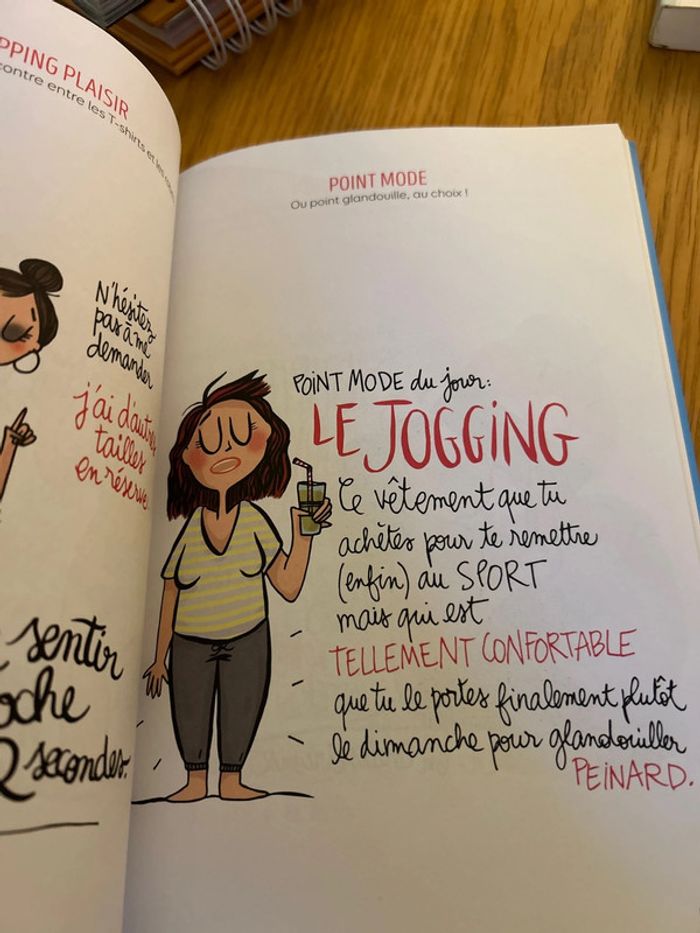 PPING PLAISIR
contre entre les T-shirts et les
N'hésitez
pas à me
demander
j'ai d'autres
tailles
en réserve.
sentir
oche
2 secondes.
POINT MODE
Ou point glandouille, au choix !
POINT MODE du jour:
LE JOGGING
Ce vêtement que tu
achètes pour te remettre
(enfin) au SPORT
mais qui est
TELLEMENT CONFORTABLE
que tu le portes finalement plutôt
le dimanche pour glandouiller
PEINARD.